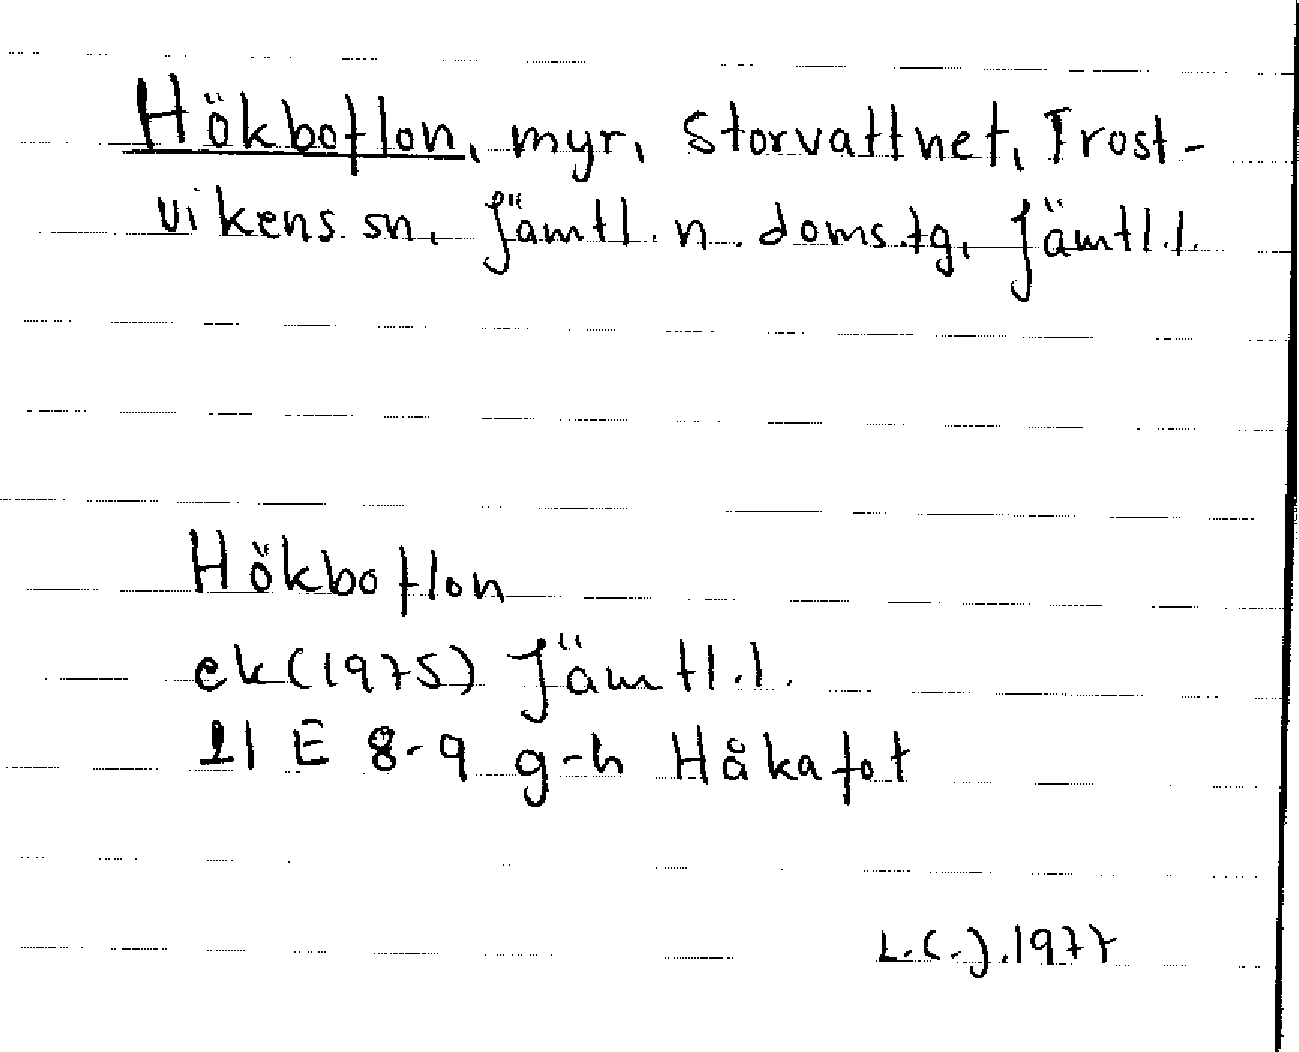 Hökboflon, myr, Storvattnet, Frost-
vikens sn, Jämtl. n. doms.tg, Jämtl.l.
Hökboflon
ek(1975) Jämtl.l.
21 E 8-9 g-h Håkafot
L.C.J. 1977